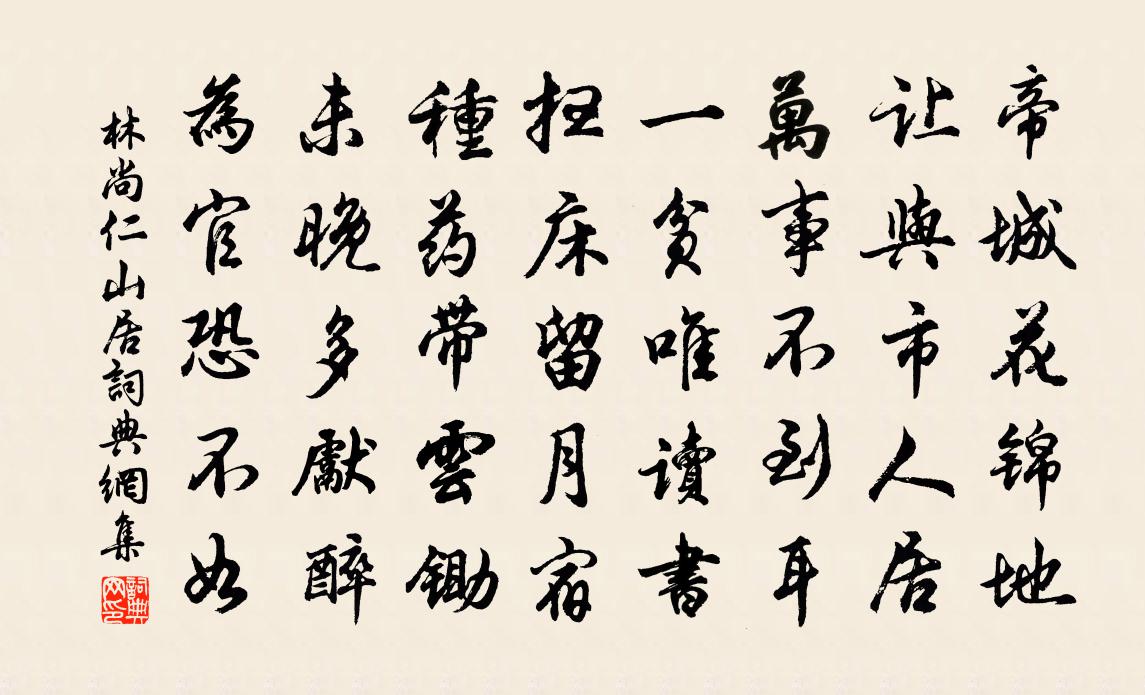 帝城花锦地
让與市人居
萬事不到耳
一貧唯讀書
扫床留月宿
種药带雲鋤
未晚多獻醉
為官恐不如
林尚仁山居詞典網集
詞典网印